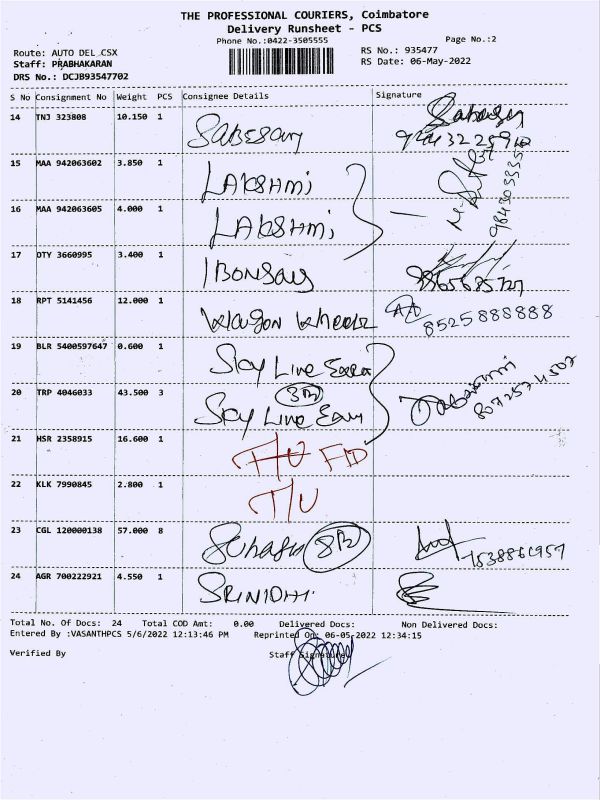 THE PROFESSIONAL COURIERS, Coimbatore
Delivery Runsheet - PCS
Phone No.:0422-3505555 Page No.:2
Route: AUTO DEL CSX RS No.: 935477
Staff: PRABHAKARAN RS Date: 06-May-2022
DRS No.: DCJB93547702
S No Consignment No Weight PCS Consignee Details Signature
14 TNJ 323808 10.150 1 SABESAN
15 MAA 942063602 3.850 1 LAKSHMI
16 MAA 942063605 4.000 1 LAKSHMI
17 OTY 3660995 3.400 1 IBONSAY
18 RPT 5141456 12.000 1 Wagon Wheels 8525888888
19 BLR 5400597647 0.600 1 Sky Line
20 TRP 4046033 43.500 3 Sky Line
21 HSR 2358915 16.600 1 FID
22 KLK 7990845 2.800 1 T/U
23 CGL 120000138 57.000 8
24 AGR 700222921 4.550 1 SRINIDHI
Total No. Of Docs: 24 Total COD Amt: 0.00 Delivered Docs: Non Delivered Docs:
Entered By :VASANTHPCS 5/6/2022 12:13:46 PM Reprinted On: 06-05-2022 12:34:15
Verified By Staff Signature